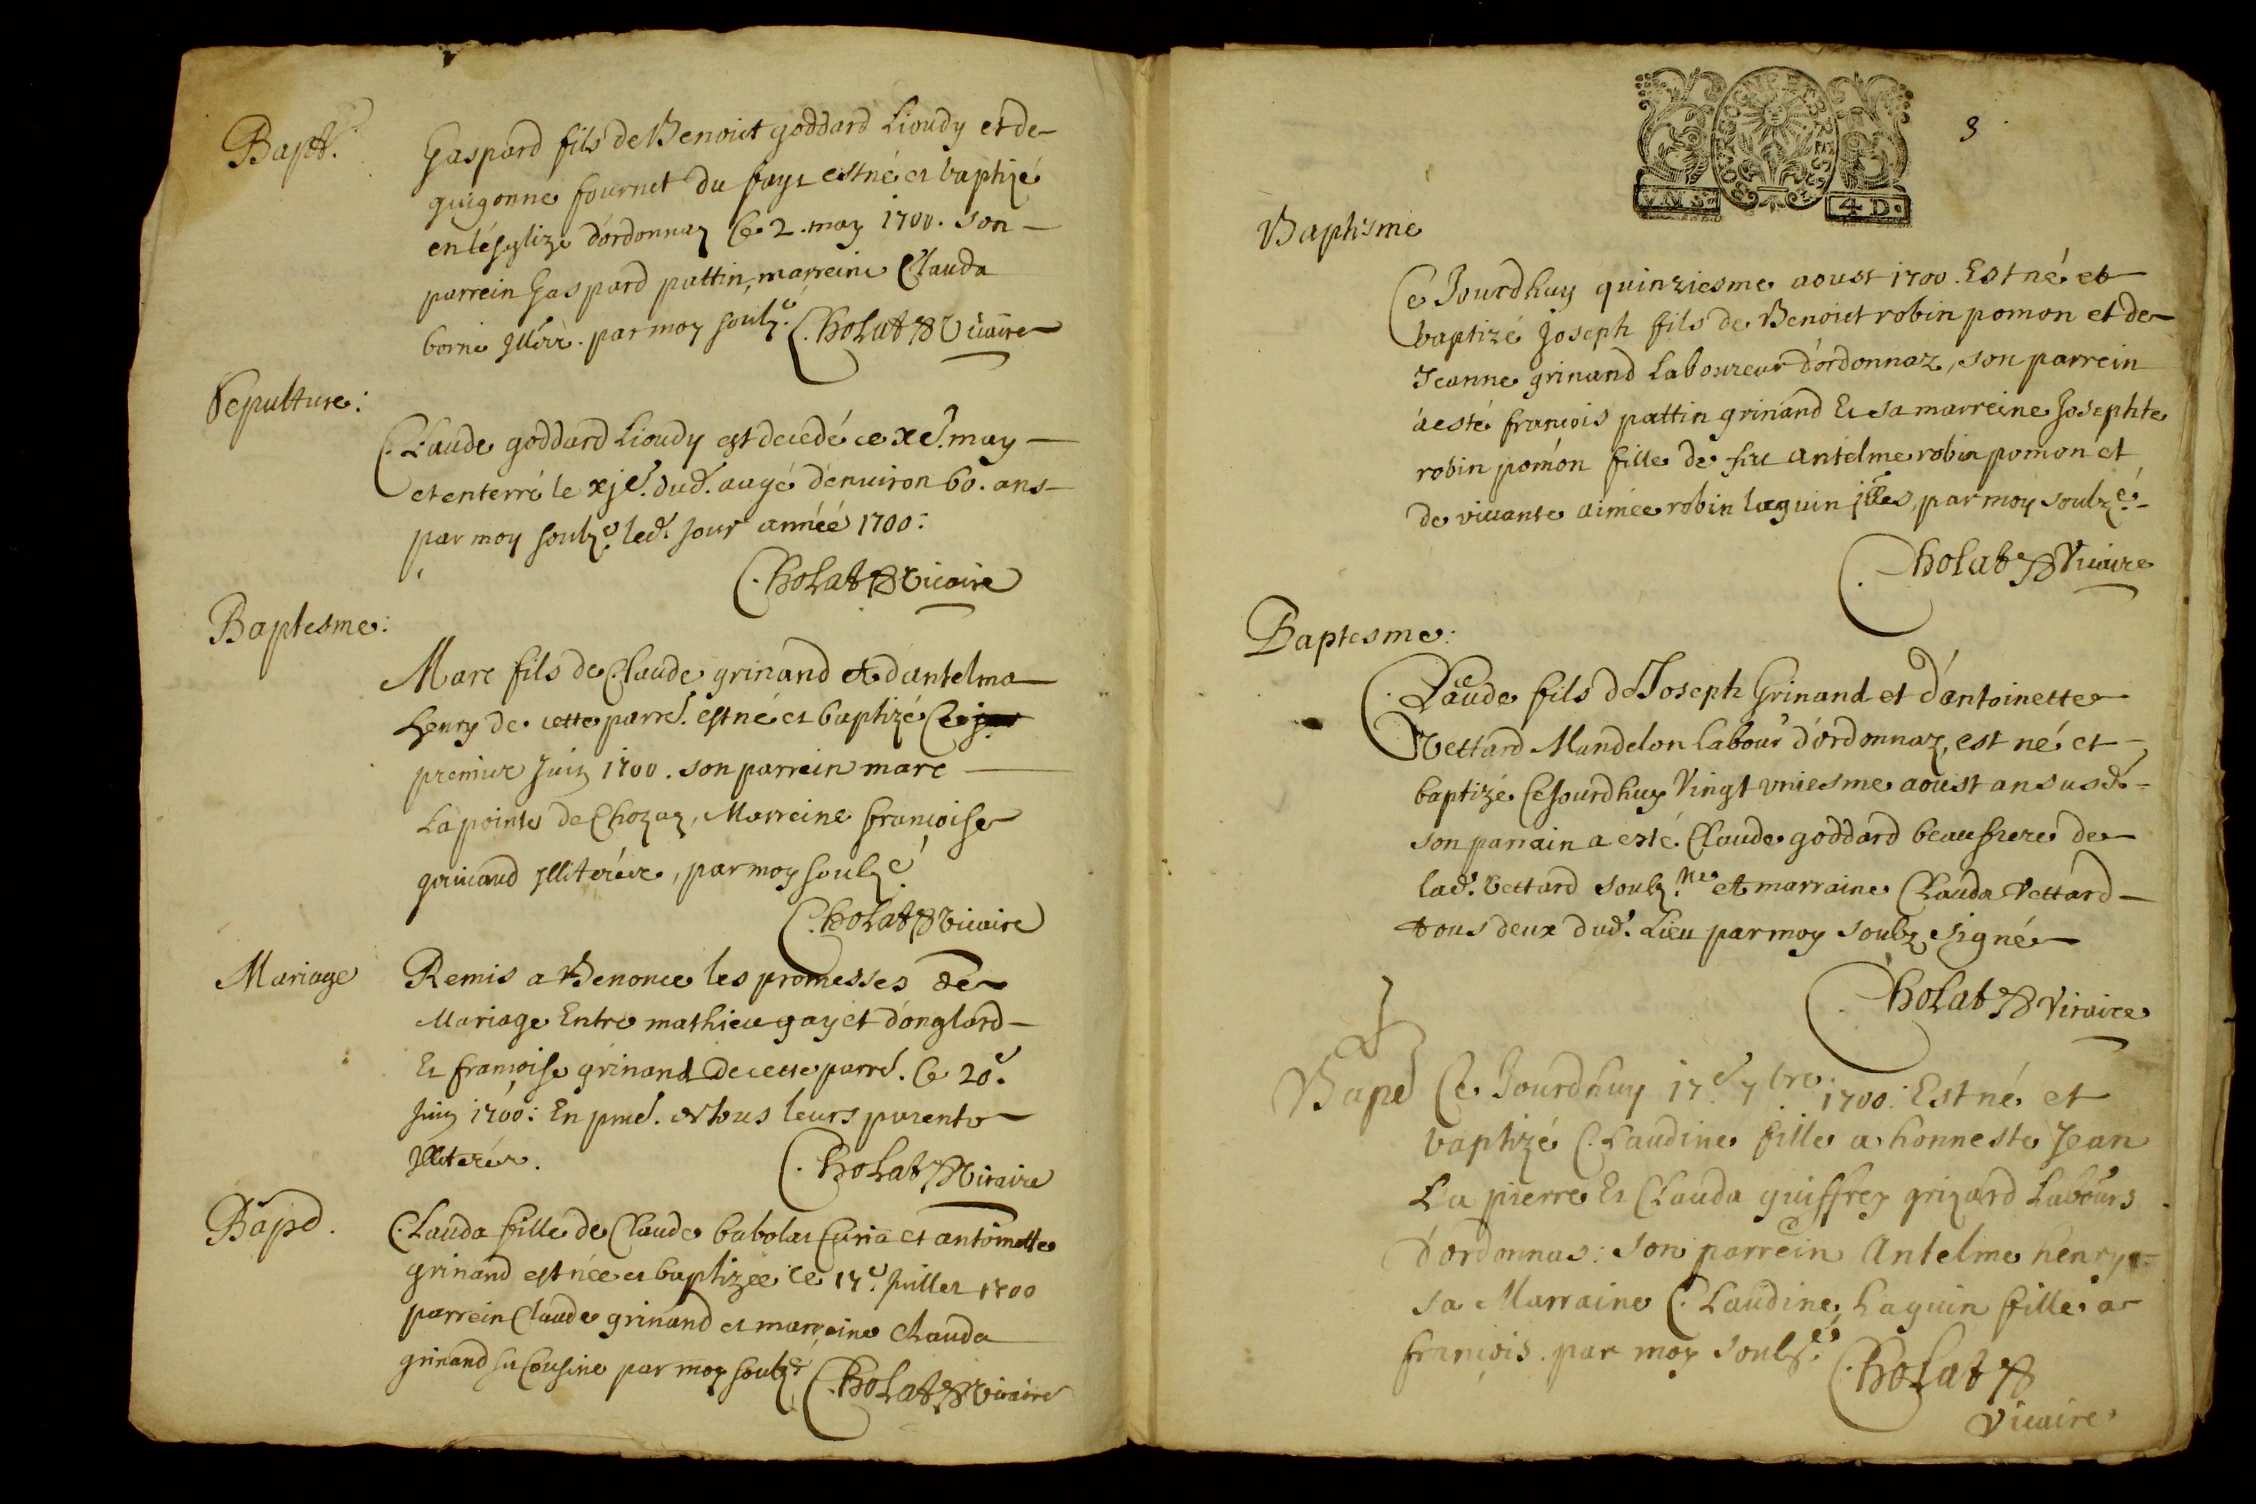 Bapt.
Gaspard fils de Benoict goddard Lioudy et de
guigonne fournet du fays est né et baptizé
en l'ésglize d'ordonnaz Ce 2. may 1700. son
parrein Gaspard pattin, marreine Clauda
borne Illérè. par moy soulz.é Cholat Vicaire
Sepulture:
Claude goddard Lioudy est decedé ce xe. may
et enterré le xje. dud. aagé d'enuiron 60. ans
par moy soulz.é led. jour année 1700:
Cholat Vicaire
Baptesme:
Marc fils de Claude grinand et d'antelma
henry de cette parre. est né et baptizé Ce
premier Juin 1700. son parrein marc
Lapointe de Chozaz, Marreine francoise
grinand Illiterére, par moy soulz.é
Cholat Vicaire
Mariage
Remis a Benonce les promesses de
Mariage Entre mathieu gayet d'onglard
Et francoise grinand de cette parre. Ce 20.e
Juin 1700: En pnce. et tous leurs parents
Illiterér.
Cholat Vicaire
Bapd.
Clauda fille de Claude babolat Curia et antoinette
grinand est née et baptizée ce 17.e Juillet 1700
parrein Claude grinand et marreine Clauda
grinand sa Cousine par moy soulz.é Cholat Vicaire
3
VN S.
4 D.
Baptisme
Ce Jourdhuy quinziesme aoust 1700. Est né et
baptizé Joseph fils de Benoict robin pomon et de
Jeanne grinand Laboureur d'ordonnaz, son parrein
a esté francois pattin grinand Et sa marreine Josephte
robin pomon fille de feu antelme robin pomon et
de viuante aimée robin laguin illes, par moy soulz.é
Cholat Vicaire
Baptesme:
Claude fils de Joseph Grinand et d'antoinette
Vettard Mandelon labour d'ordonnaz, est né et
baptizé Ce Jourdhuy Vingt vniesme aoust an susd.
son parrain a esté Claude goddard beaufrere de
lad. Vettard soulz.ne et marraine Clauda Vettard
tous deux dud. Lieu par moy soubz signé
Cholat Vicaire
Bapd
Ce Jourdhuy 17.e 7bre. 1700. Est né et
baptizé Claudine fille a honneste Jean
La pierre Et Clauda guiffrey grizard Labours
d'ordonnas: son parrein Antelme henry
sa Marraine Claudine Laguin fille a
francois. par moy soulz.é Cholat
Vicaire